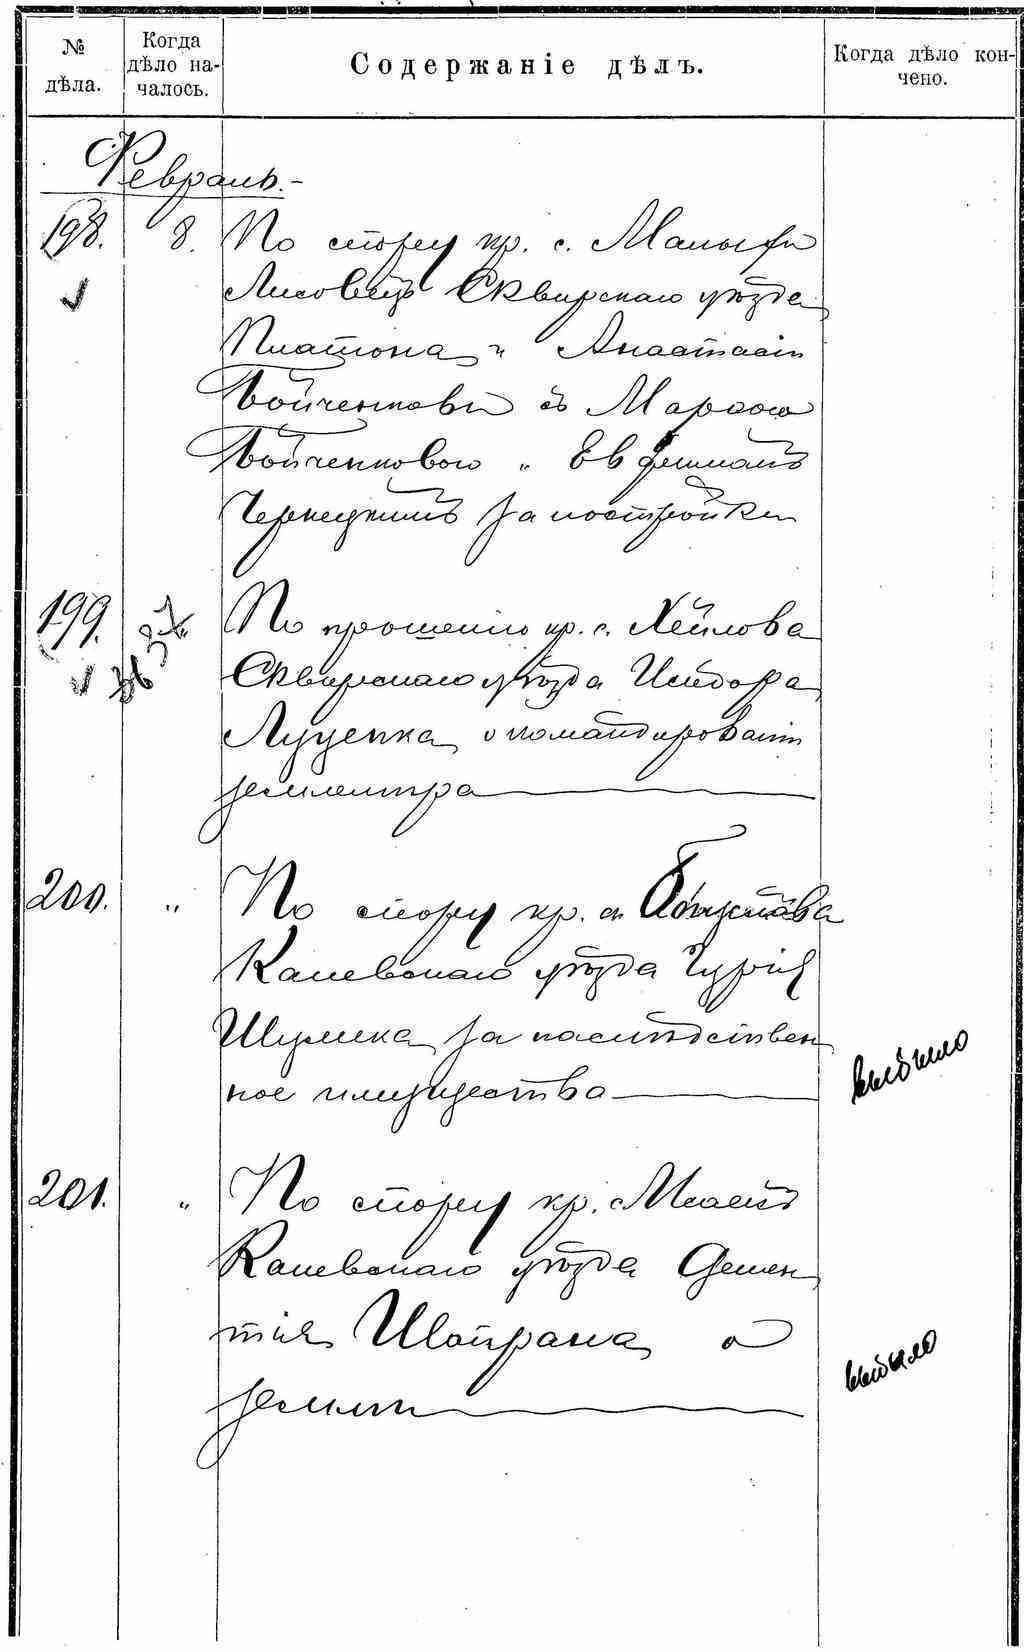 № дѣла.
Когда дѣло на-
чалось.
Содержаніе дѣлъ.
Когда дѣло кон-
чено.
Февраль.-
198. 8. По спору кр. с. Малыхъ
Лисовецъ Сквирскаго уѣзда
Платона и Анастасіи
Бойченковы съ Марѳою
Бойченковою и Евфиміемъ
Чернецкимъ за постройки
199. По прошенію кр. с.
Сквирскаго уѣзда Исидора
Луценка о командированіи
землемѣра
200. " По спору кр. с.
Каневскаго уѣзда Гурія
Шулика за наслѣдствен
ное имущества
выбыло
201. " По спору кр.
Каневскаго уѣзда Демен
тія Шапрана о
землѣ
выбыло